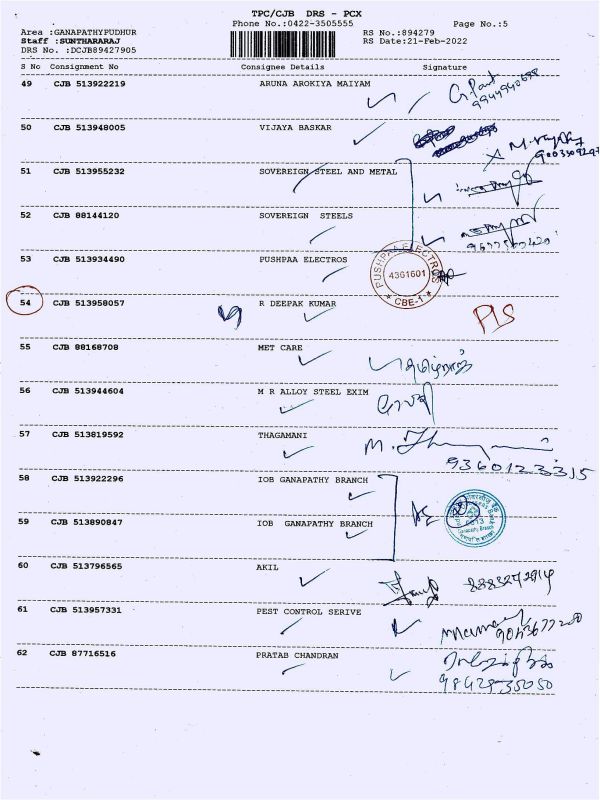 TPC/CJB DRS - PCX
Phone No.:0422-3505555 Page No.:5
Area :GANAPATHYPUDHUR RS No.:894279
Staff :SUNTHARARAJ RS Date:21-Feb-2022
DRS No. :DCJB89427905
S No Consignment No Consignee Details Signature
49 CJB 513922219 ARUNA AROKIYA MAIYAM
50 CJB 513948005 VIJAYA BASKAR
51 CJB 513955232 SOVEREIGN STEEL AND METAL
52 CJB 88144120 SOVEREIGN STEELS
53 CJB 513934490 PUSHPAA ELECTROS
PUSHPAA ELECTROS
4361601
★ CBE-1 ★
54 CJB 513958057 R DEEPAK KUMAR
55 CJB 88168708 MET CARE
56 CJB 513944604 M R ALLOY STEEL EXIM
57 CJB 513819592 THAGAMANI
9360123315
58 CJB 513922296 IOB GANAPATHY BRANCH
59 CJB 513890847 IOB GANAPATHY BRANCH
60 CJB 513796565 AKIL
61 CJB 513957331 PEST CONTROL SERIVE
62 CJB 87716516 PRATAB CHANDRAN
98429-35050